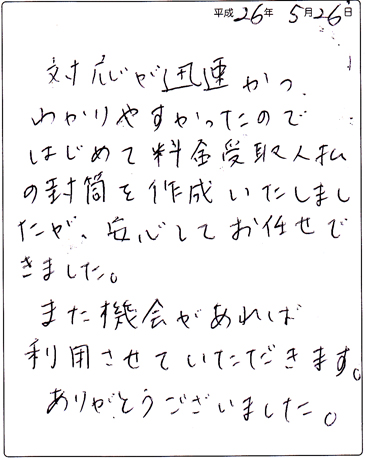 平成26年 5月26日
対応が迅速かつ、
わかりやすかったので
はじめて料金受取人払
の封筒を作成いたしまし
たが、安心してお任せで
きました。
また機会があれば
利用させていただきます。
ありがとうございました。